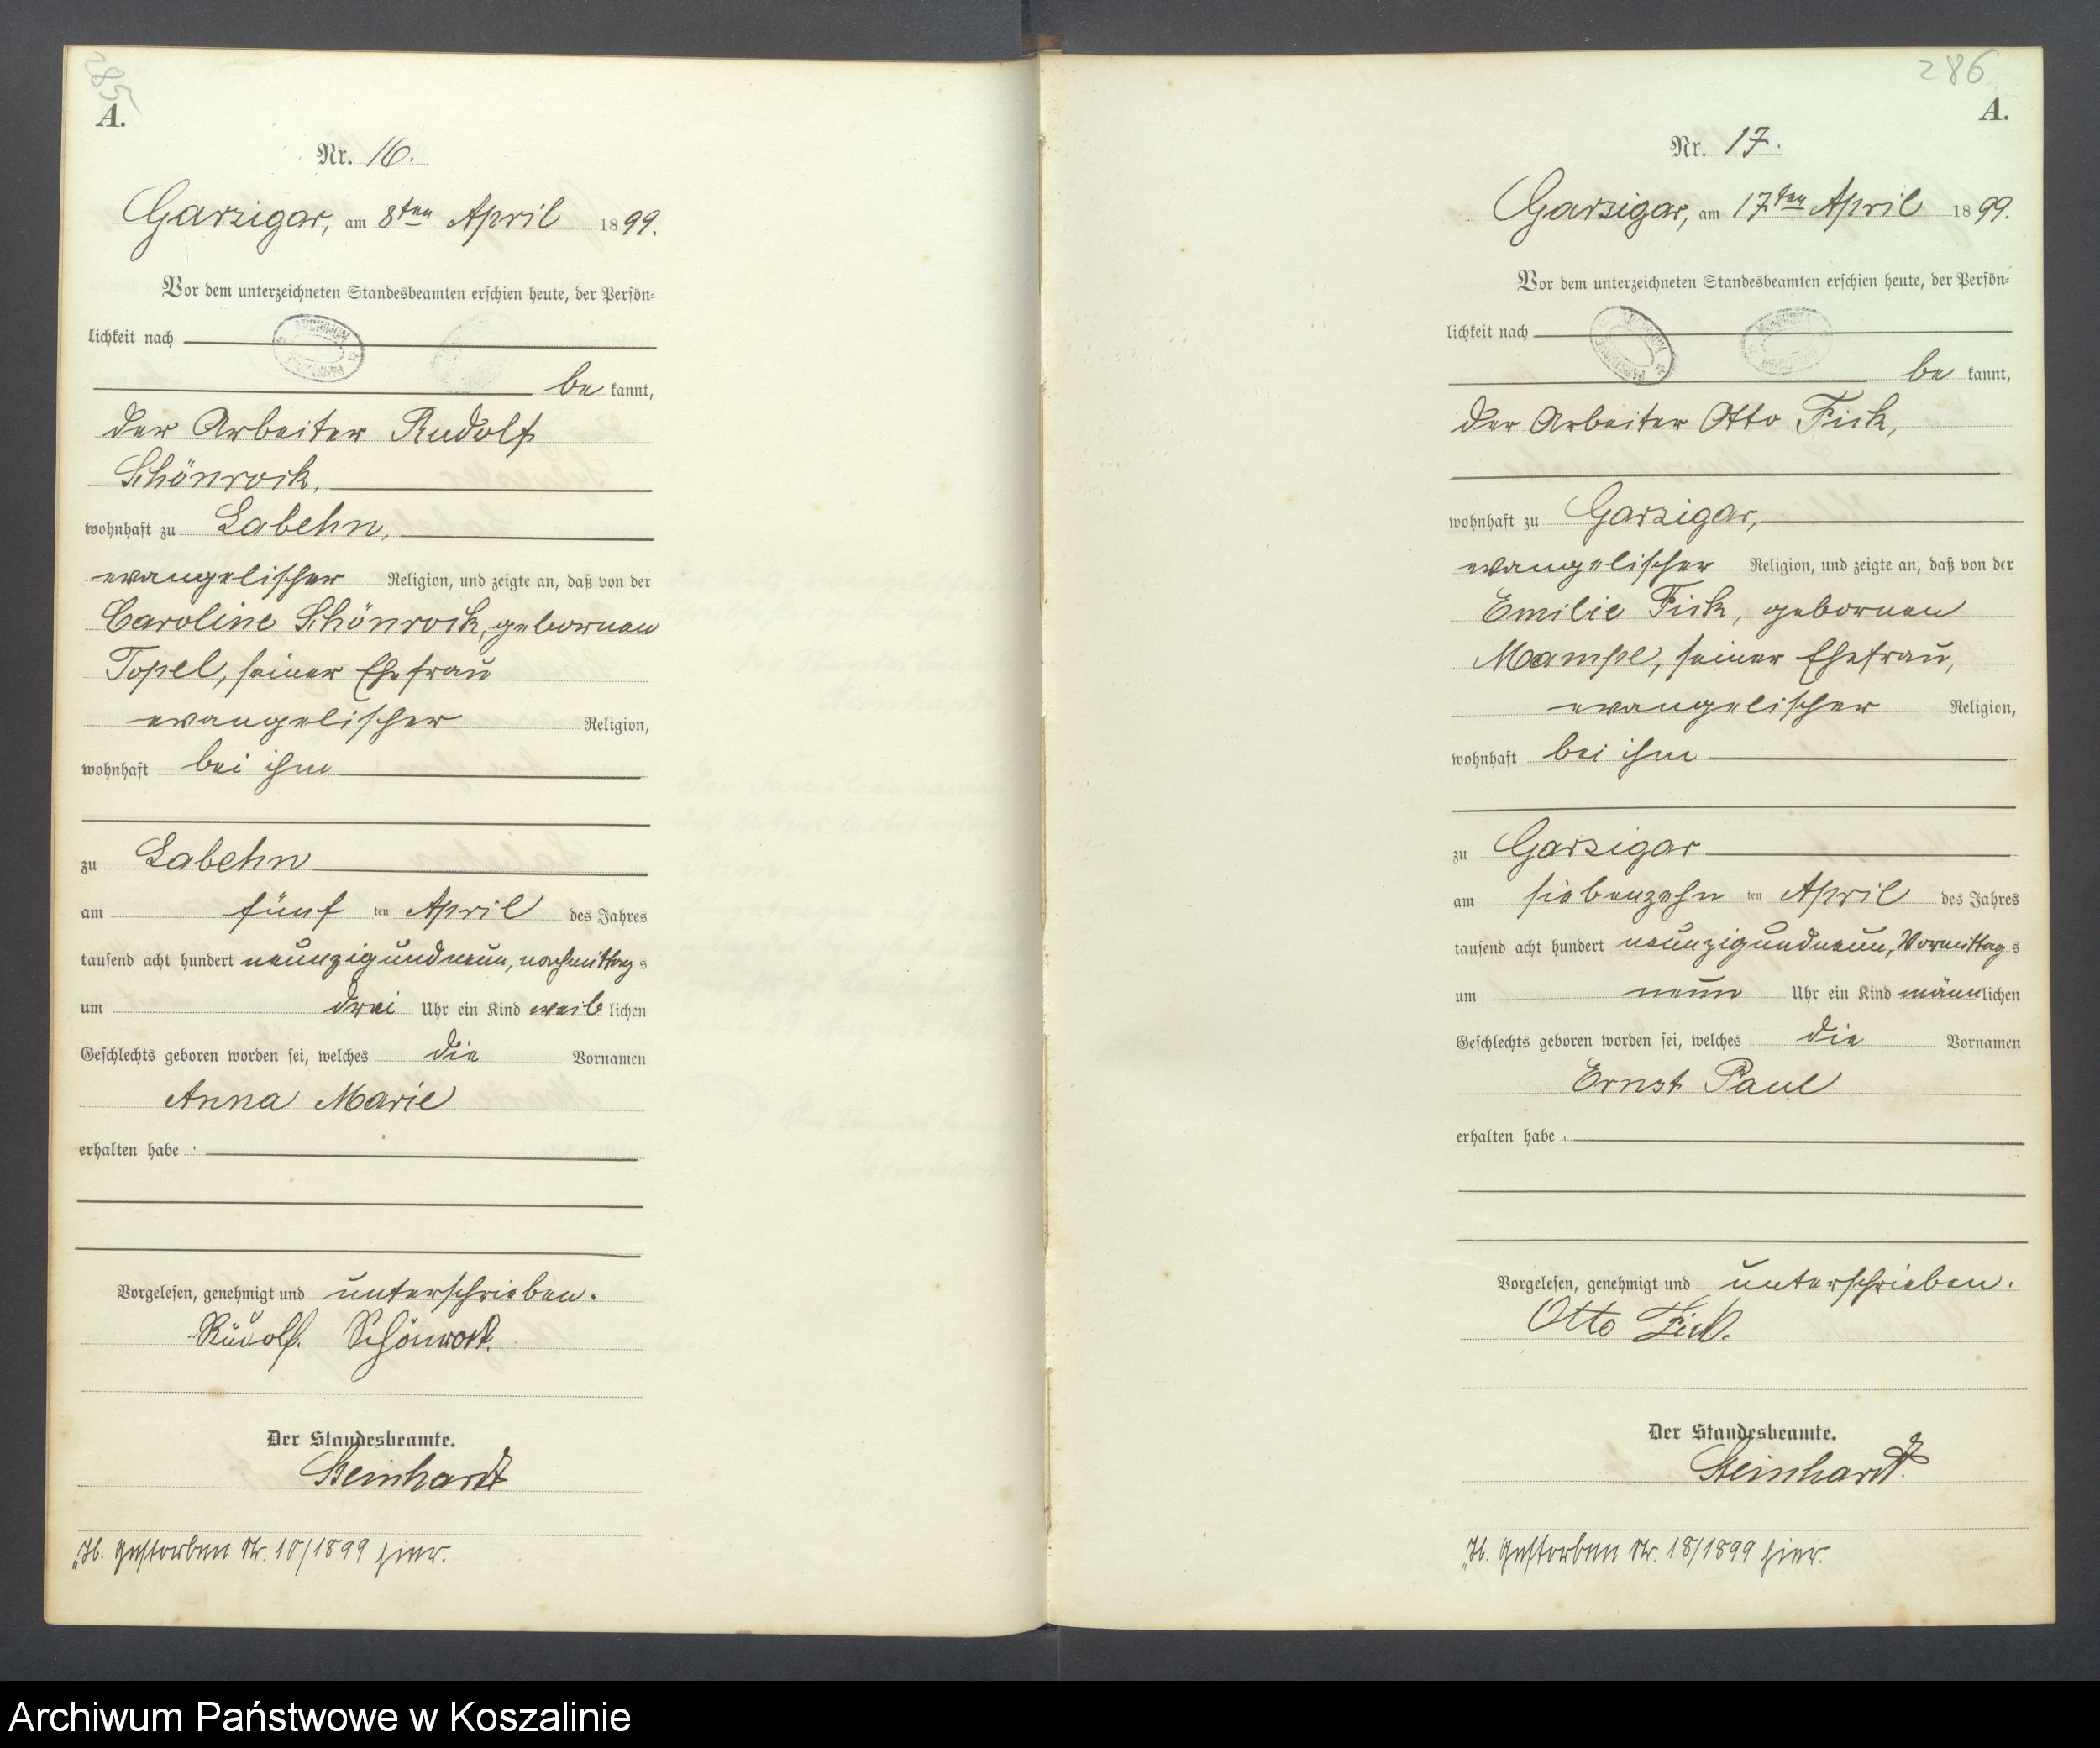 285
A.
Nr. 16.
Garzigar, am 8ten April 1899.
Vor dem unterzeichneten Standesbeamten erschien heute, der Persön=
lichkeit nach
be kannt,
der Arbeiter Rudolf
Schönrock,
wohnhaft zu Labehn,
evangelischer Religion, und zeigte an, daß von der
Caroline Schönrock, gebornen
Topel, seiner Ehefrau
evangelischer Religion,
wohnhaft bei ihm
zu Labehn
am fünf ten April des Jahres
tausend acht hundert neunzigundneun, nachmittag s
um drei Uhr ein Kind weib lichen
Geschlechts geboren worden sei, welches die Vornamen
Anna Marie
erhalten habe
Vorgelesen, genehmigt und unterschrieben.
Rudolf. Schönrock.
Der Standesbeamte.
Steinhardt
H. Gestorben Nr. 10/1899 hier.
286
A.
Nr. 17.
Garzigar, am 17ten April 1899.
Vor dem unterzeichneten Standesbeamten erschien heute, der Persön=
lichkeit nach
be kannt,
der Arbeiter Otto Fick,
wohnhaft zu Garzigar,
evangelischer Religion, und zeigte an, daß von der
Emilie Fick, gebornen
Mampe, seiner Ehefrau,
evangelischer Religion,
wohnhaft bei ihm
zu Garzigar
am siebenzehn ten April des Jahres
tausend acht hundert neunzigundneun, Vormittag s
um neun Uhr ein Kind männlichen
Geschlechts geboren worden sei, welches die Vornamen
Ernst Paul
erhalten habe
Vorgelesen, genehmigt und unterschrieben.
Otto Fick.
Der Standesbeamte.
Steinhardt.
H. Gestorben Nr. 18/1899 hier.
Archiwum Państwowe w Koszalinie